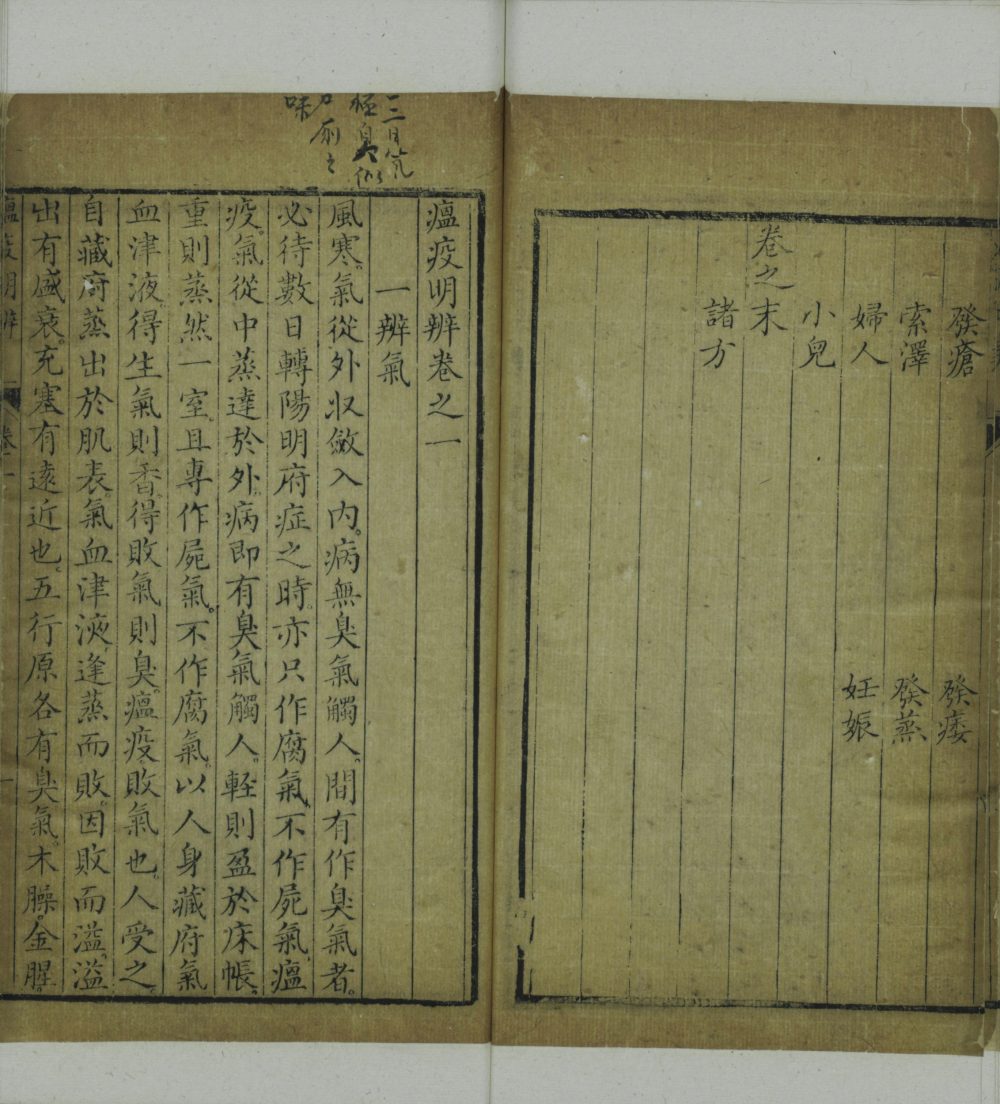 發瘡　發痿
索澤　發蒸
婦人　妊娠
小兒
卷之末
諸方
瘟疫明辨卷之一
一辨氣
風寒。氣從外收斂入内。病無臭氣觸人。間有作臭氣者。
必待數日轉陽明府症之時。亦只作腐氣。不作屍氣。瘟
疫。氣從中蒸達於外。病即有臭氣觸人。輕則盈於床帳。
重則蒸然一室。且專作屍氣。不作腐氣。以人身藏府氣
血津液。得生氣則香。得敗氣則臭。瘟疫敗氣也。人受之。
自藏府蒸出於肌表。氣血津液。逢蒸而敗。因敗而溢。溢
出有盛衰。充塞有遠近也。五行原各有臭氣。木臊。金腥。
瘟疫明辨　卷一　一
二三日氣
極臭似
味